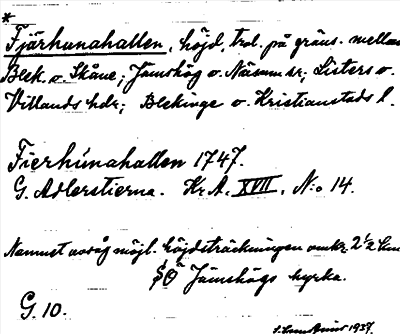 *
Fjärhunahallen, höjd, trol. på gräns. mellan
Blek. o. Skåne; Jämshög o. Näsum sr; Listers o.
Villands hdr; Blekinge o. Kristianstads l.
Fierhúnahallen 1747.
G. Adlerstierna. Kr. A. XVII. N:o 14.
Namnet avsåg möjl. höjdsträckningen omkr. 2 1/2 km
SÖ Jämshögs kyrka.
G. 10.
1937.